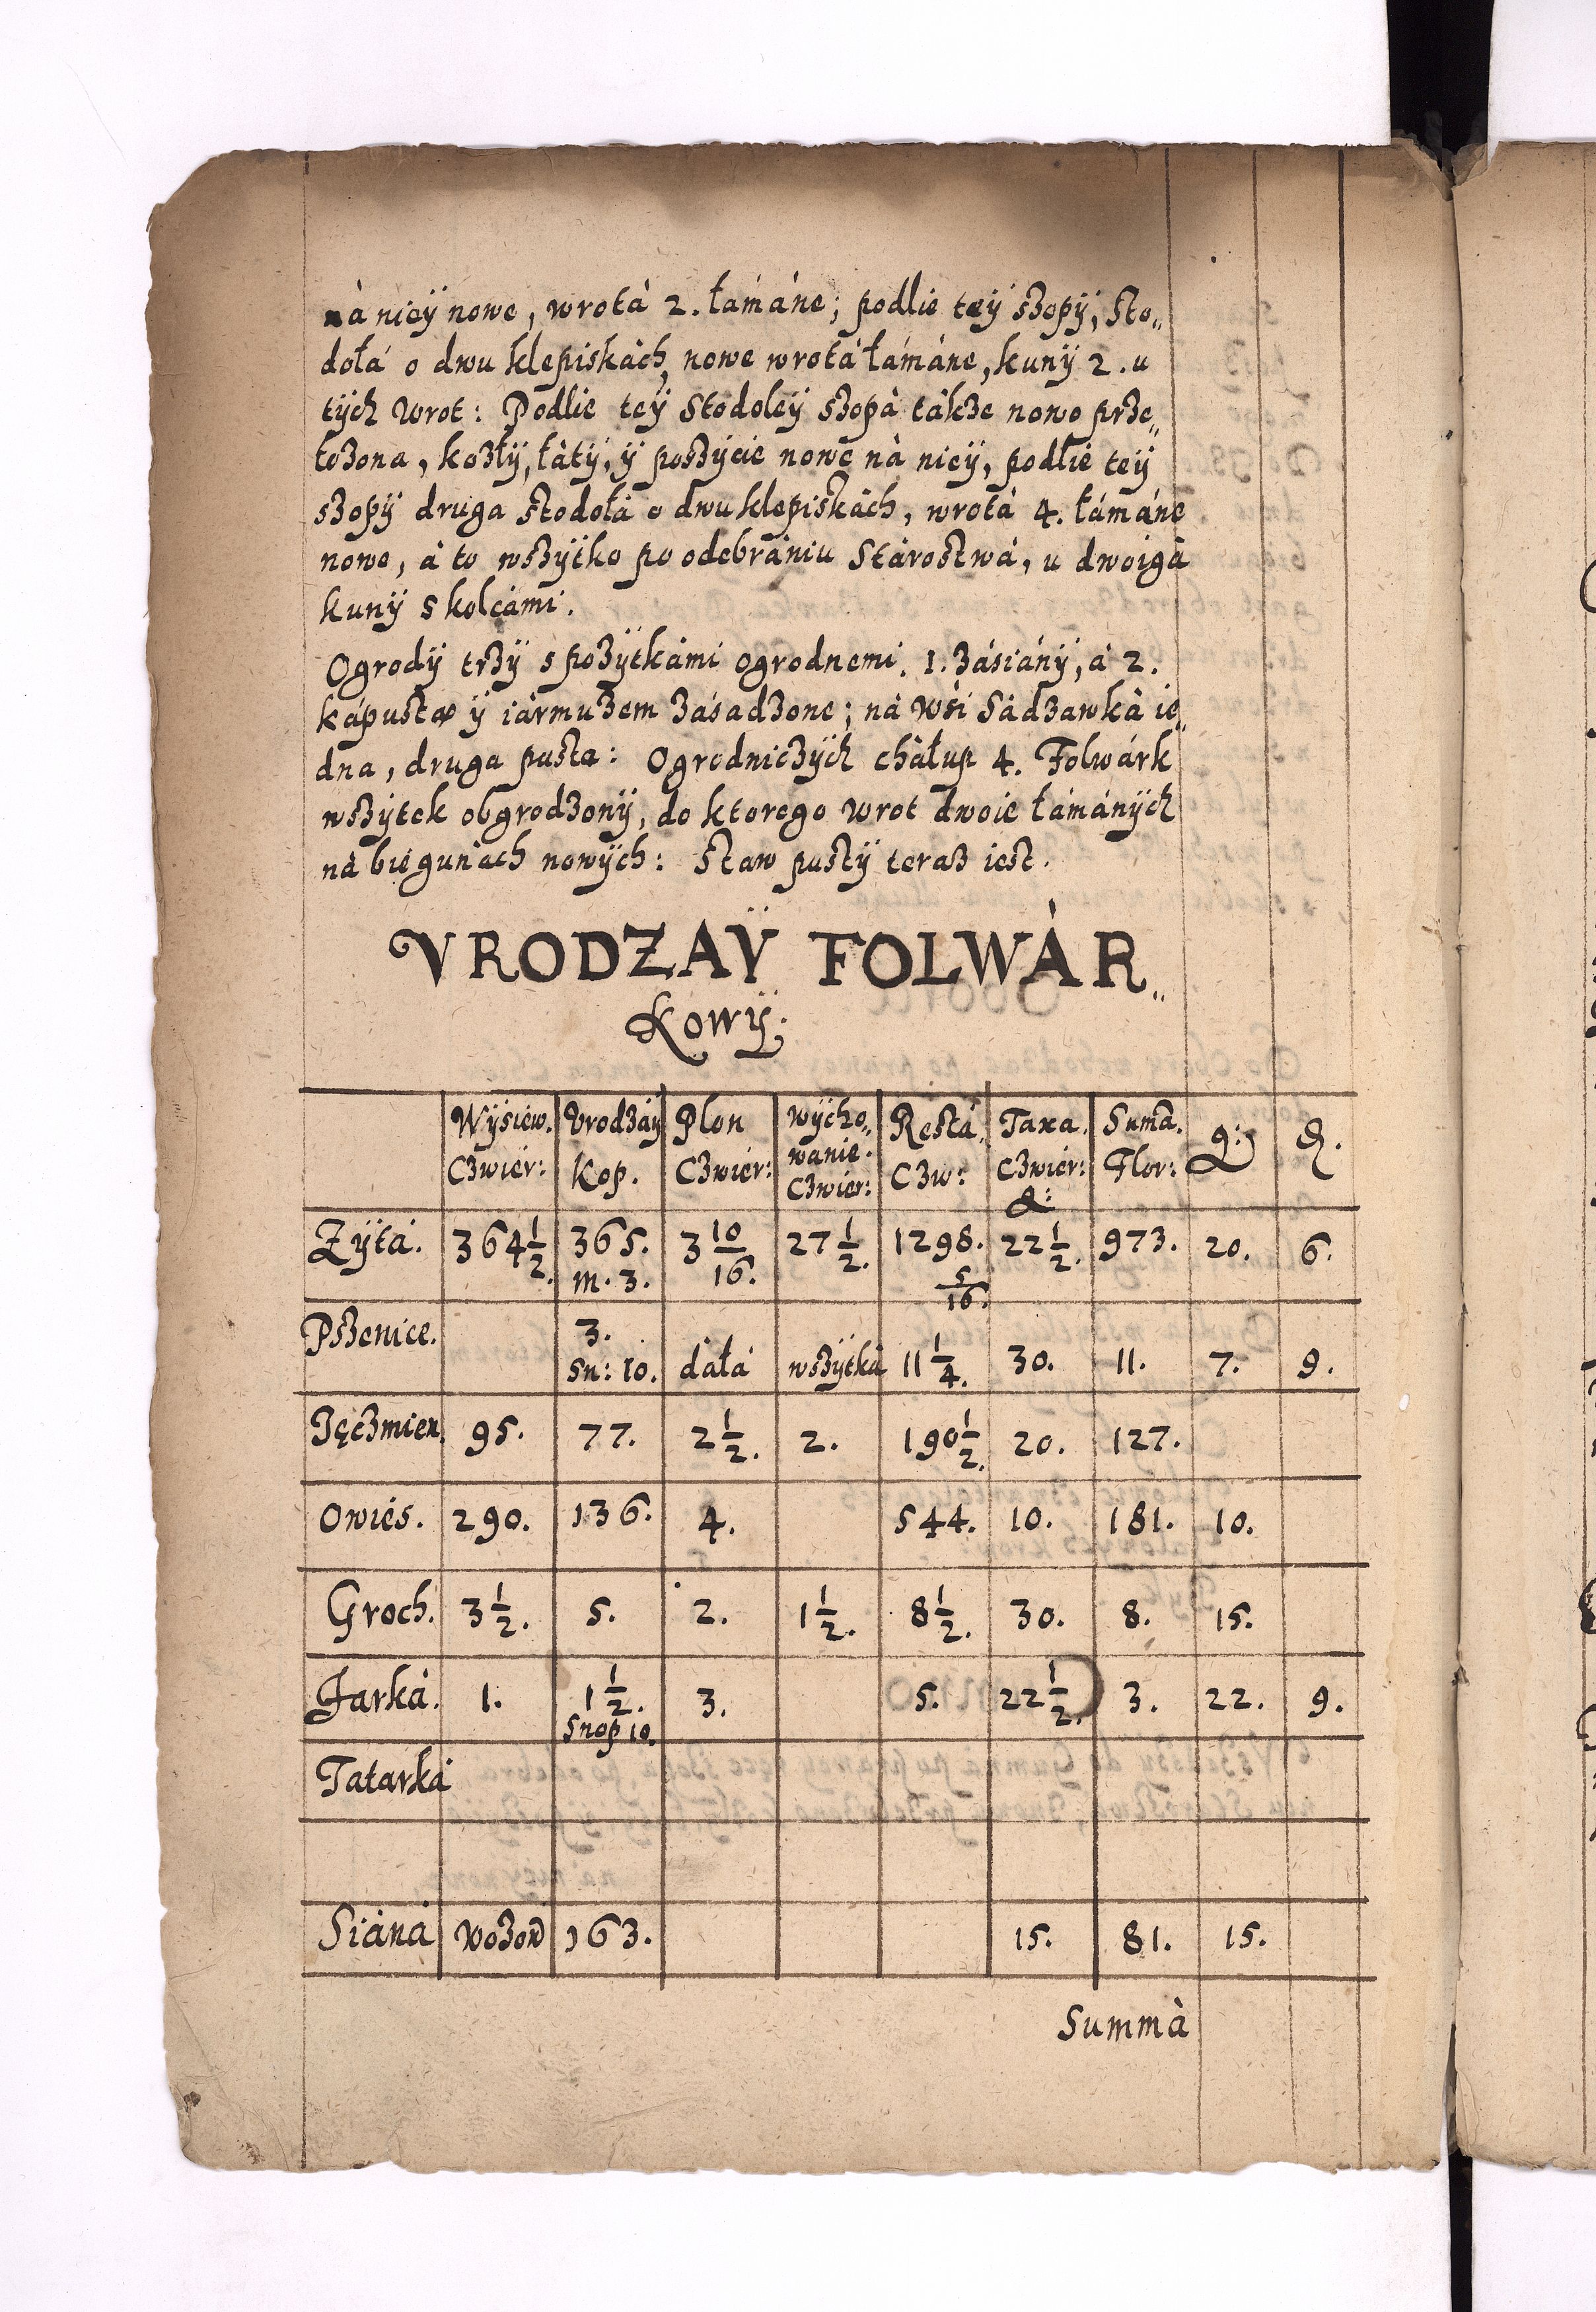 nà nieÿ nowe, wrotà 2. łámáne; podlie teÿ szopÿ, sto„
dołá o dwu klepiskách, nowe wrotá łámáne, kunÿ 2. u
tÿch wrot: Podlie teÿ stodoleÿ szopà tákze nowo prze„
łozona, kozłÿ, łàtÿ, ÿ poszÿcie nowe nà nieÿ, podlie teÿ
szopÿ druga stodołá o dwu klepiskách, wrotà 4. łámáne
nowe, á to wszÿtko po odebrániu Stárostwá, u dwoigà
kunÿ s kolcámi.
Ogrodÿ trzÿ s pozÿtkámi ogrodnemi. 1. zásiánÿ, á 2.
kápustą ÿ iármuzem zásadzone; ná wśi Sàdzawkà ie„
dna, druga pusta: Ogrodniczÿch cháłup 4. Folwárk
wszÿtek obgrodzonÿ, do ktorego wrot dwoie łámánÿch
ná biegunách nowÿch: Staw pustÿ teraz iest.
VRODZAŸ FOLWÁR„
kowÿ.
Wÿsiew. Czwier: Vrodzaÿ Kop. Plon Czwier: wÿcho„wanie. Czwier: Restá. Czw: Taxa. Czwier: Suma. Flor:
Zÿtá. 364 1/2. 365. m. 3. 3 10/16. 27 1/2. 1298. 5/16. 22 1/2. 973. 20. 6.
Pszenice. 3. sn: 10. dáłá wszÿtká 11 1/4. 30. 11. 7. 9.
Jęczmien. 95. 77. 2 1/2. 2. 190 1/2. 20. 127.
Owies. 290. 136. 4. 544. 10. 181. 10.
Groch. 3 1/2. 5. 2. 1 1/2. 8 1/2. 30. 8. 15.
Jarká. 1. 1 1/2. snop 10. 3. 5. 22 1/2. 3. 22. 9.
Tatarká
Siáná wozow 163. 15. 81. 15.
Summà